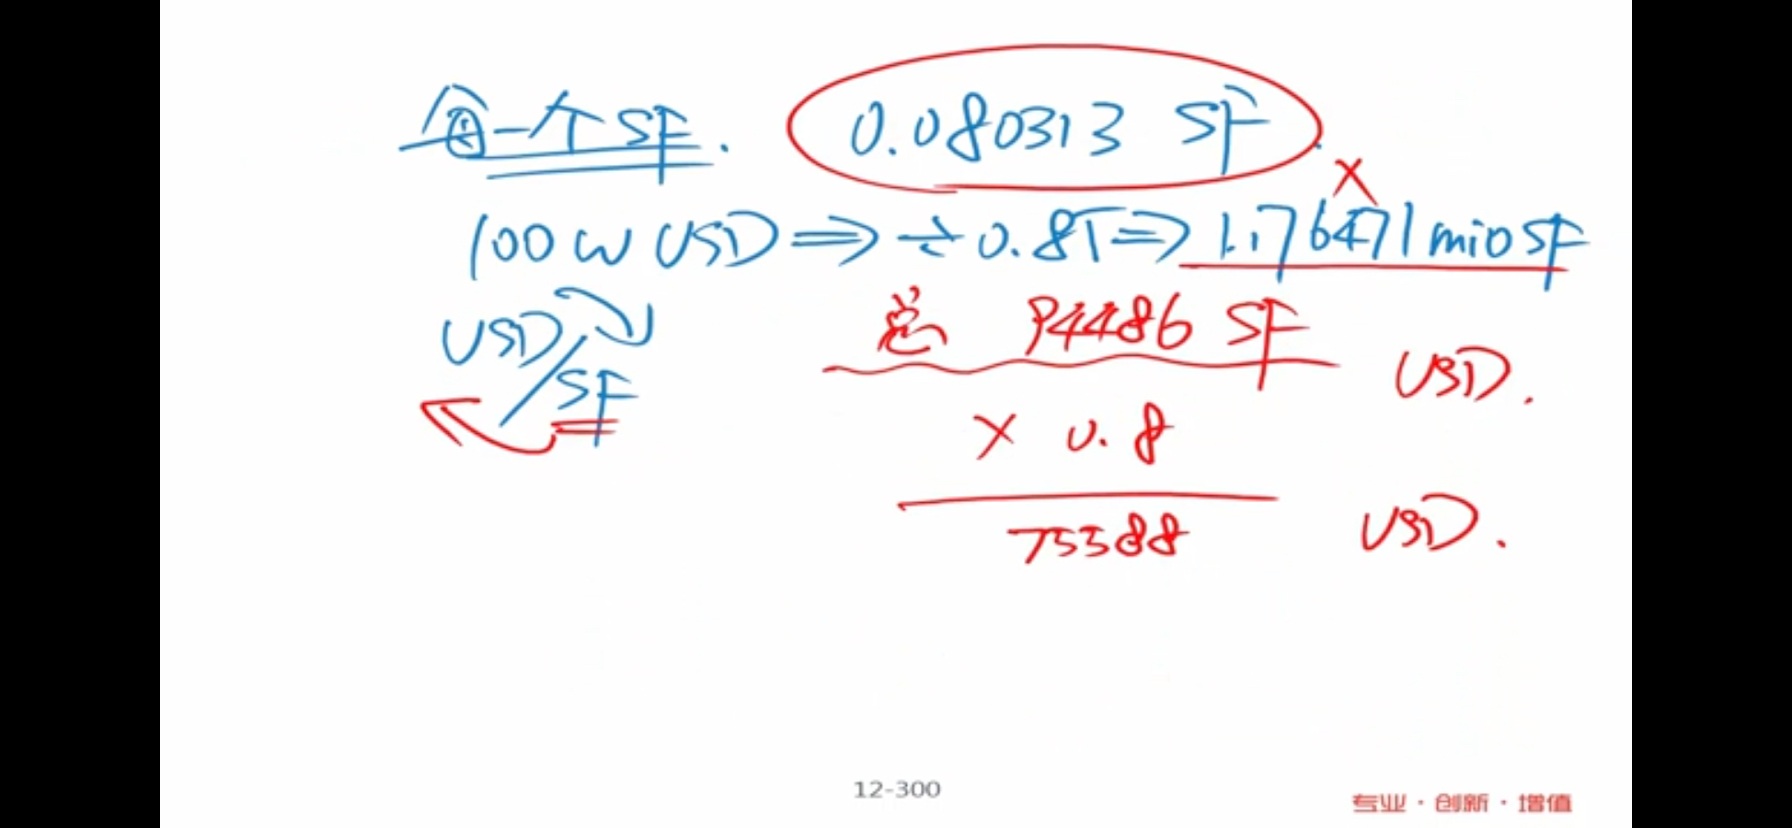 每一个SF. 0.080313 SF.
100W USD ⇒ ÷0.85 ⇒ 1.176471 mio SF
×
USD/SF
总 94486 SF
USD.
× 0.8
75588 USD.
12-300
专业·创新·增值